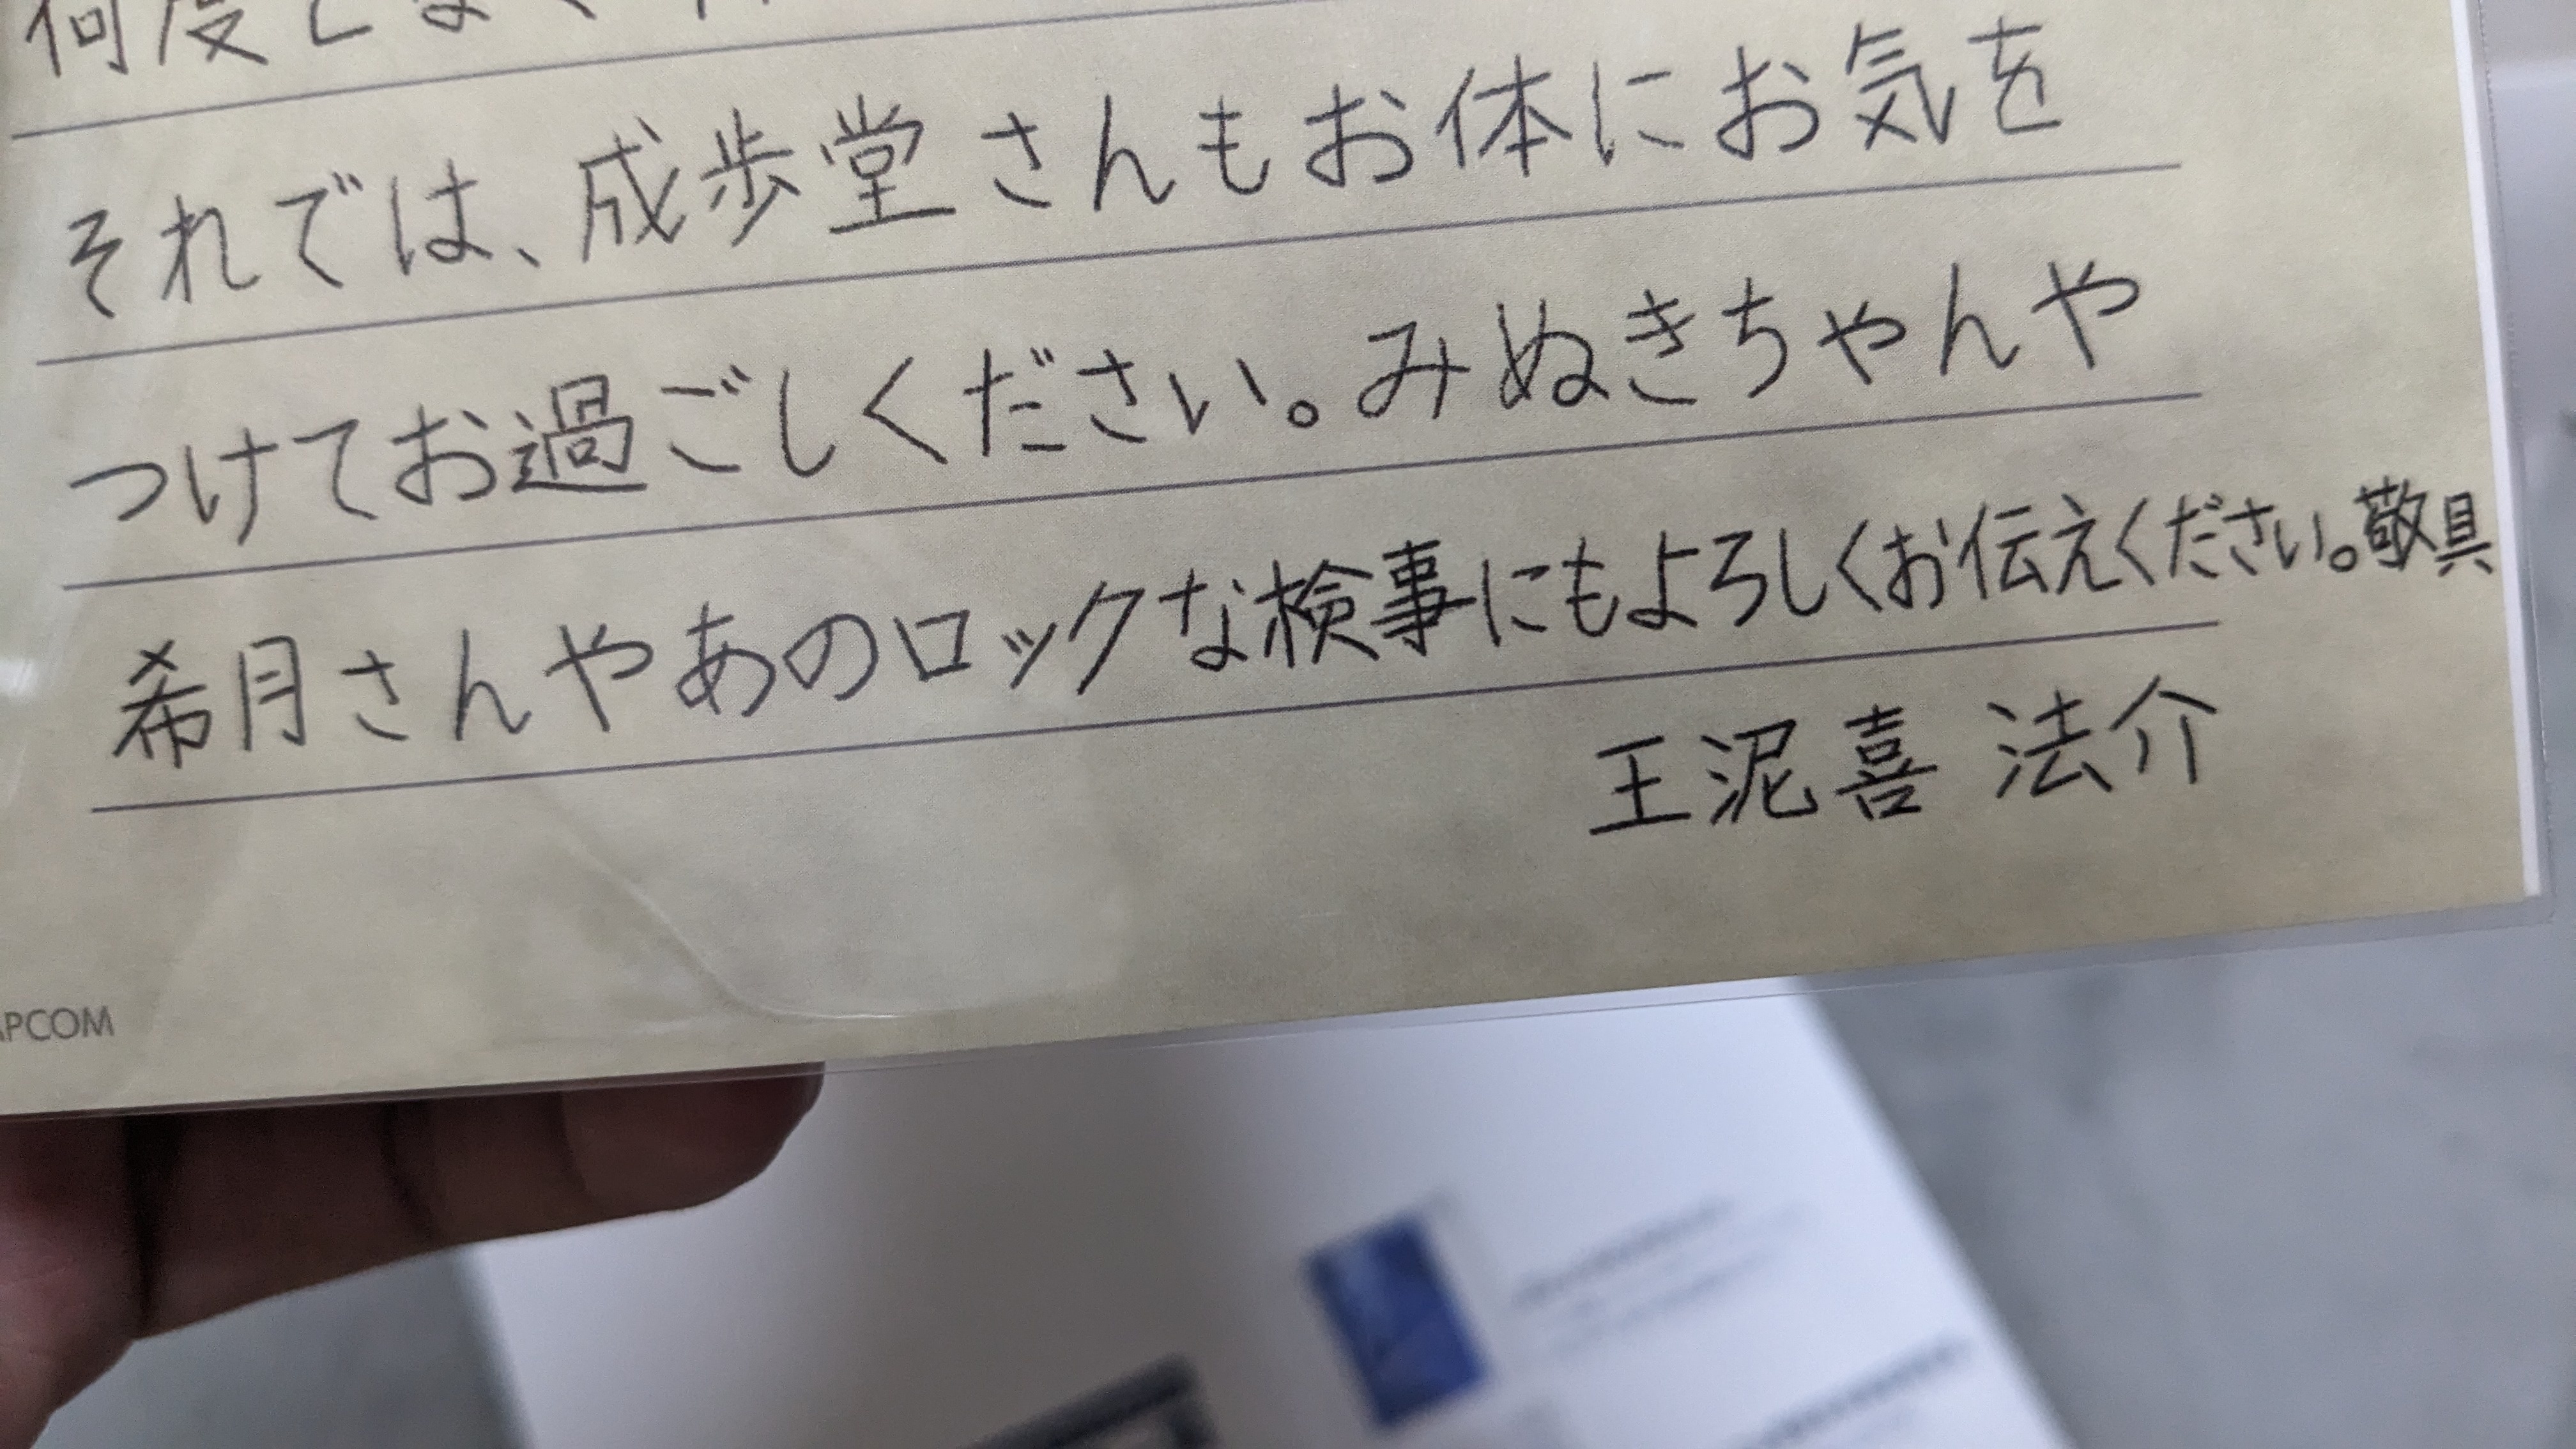 何度
それでは、成歩堂さんもお体にお気を
つけてお過ごしください。みぬきちゃんや
希月さんやあのロックな検事にもよろしくお伝えください。敬具
王泥喜 法介
APCOM